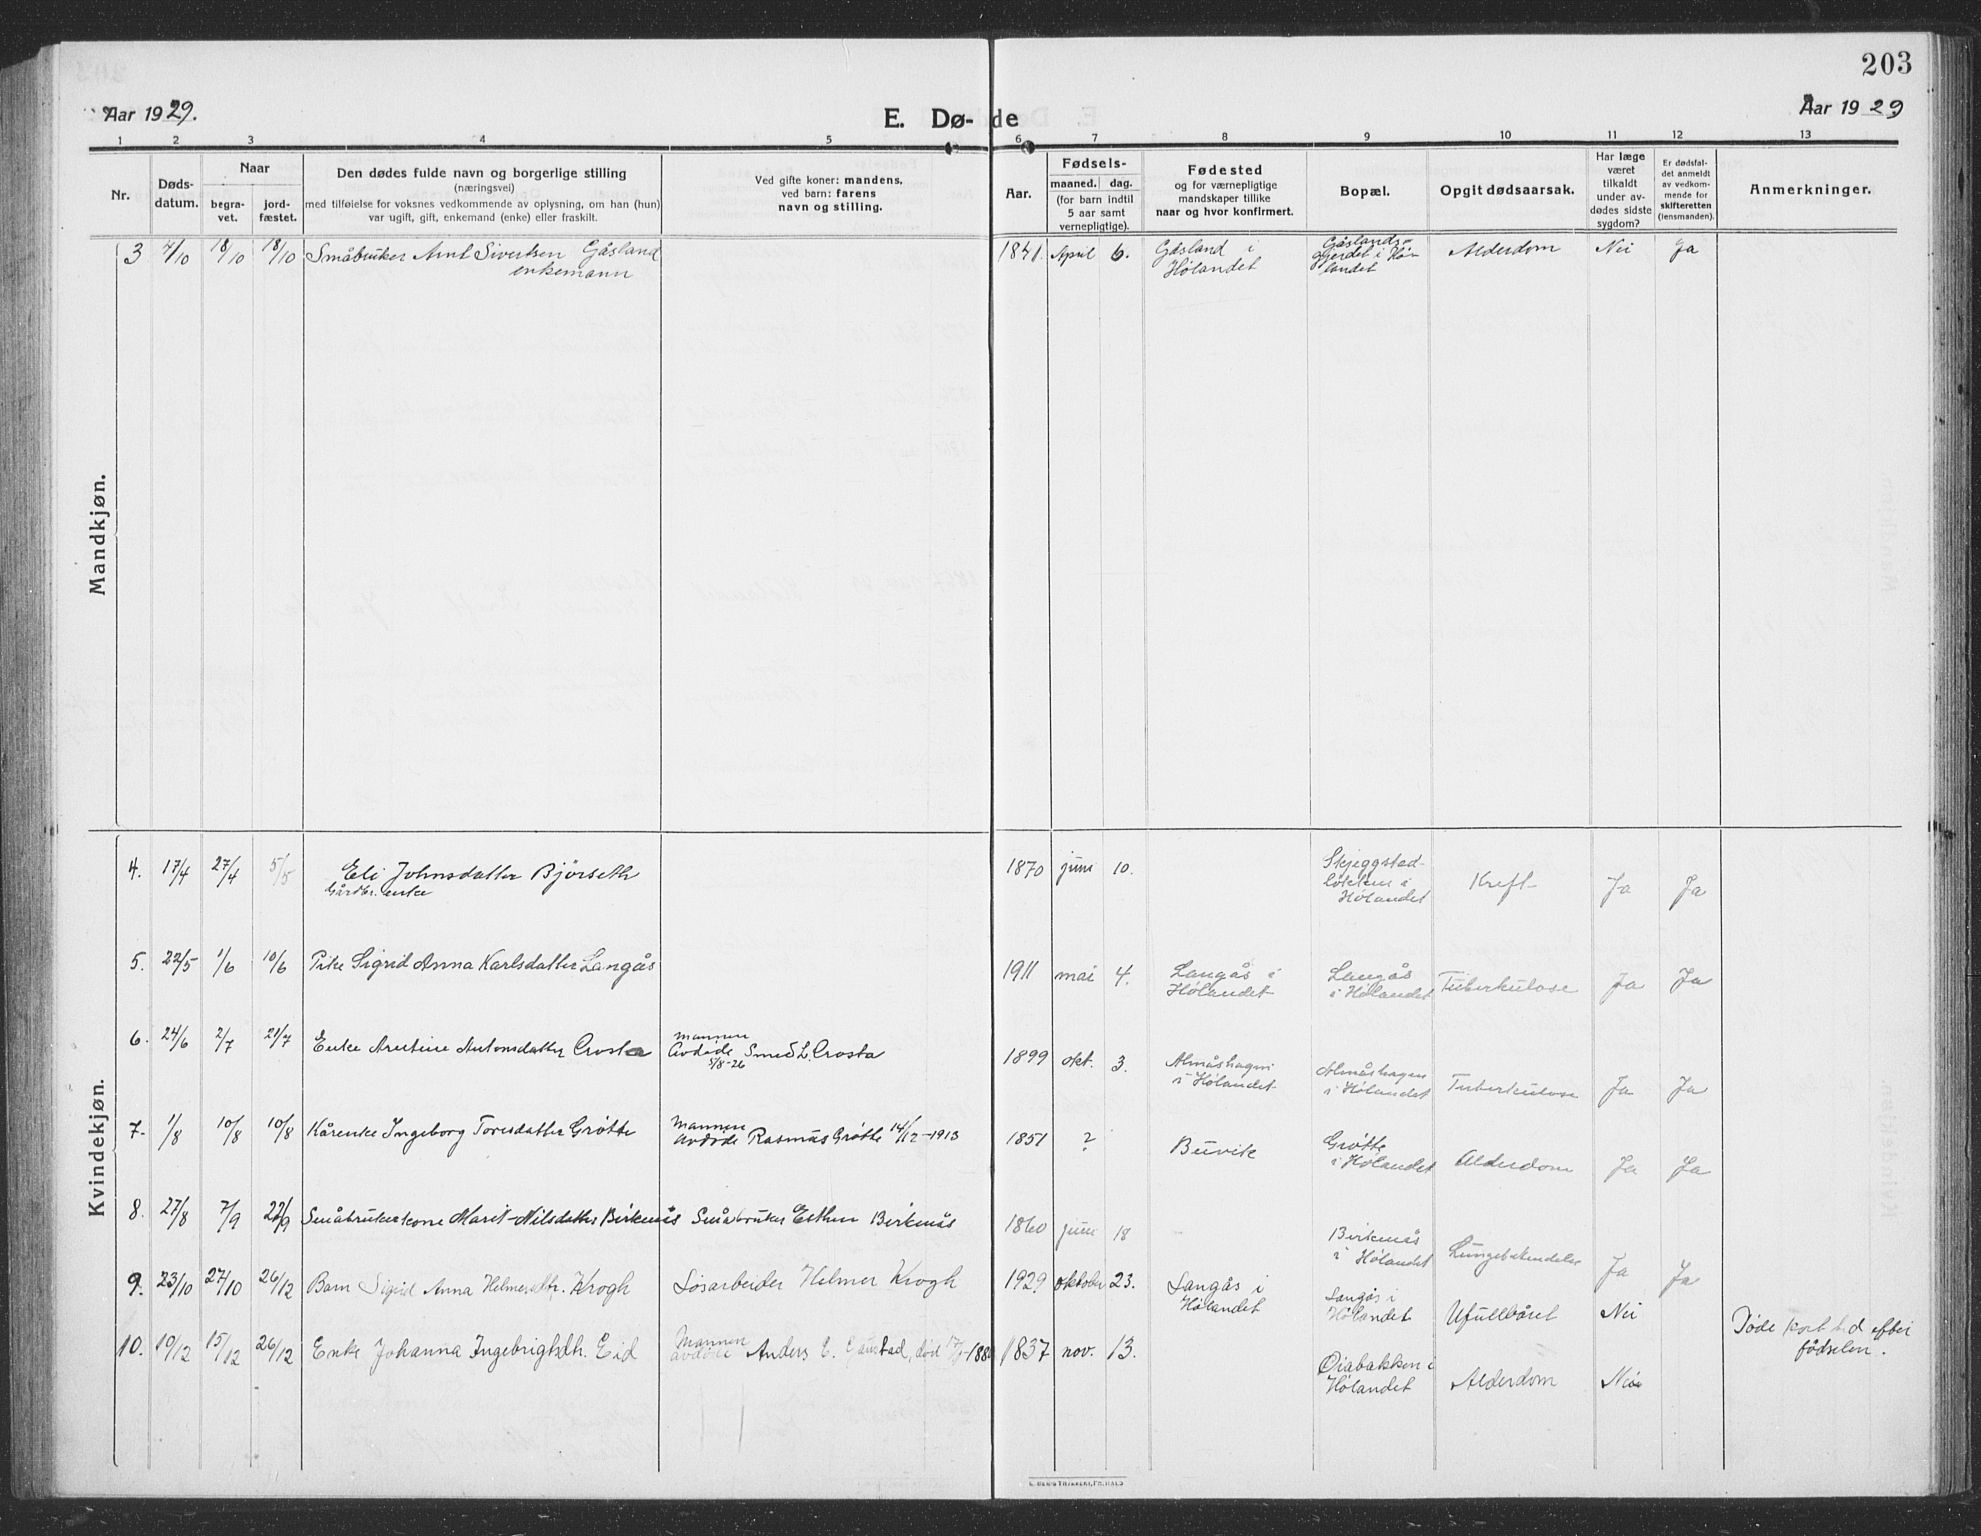 203
Aar 1929.
E. Dø-
de
Aar 1929
1 2 3 4 5 6 7 8 9 10 11 12 13
Nr.
Døds-
datum.
Naar
begra-
vet.
jord-
fæstet.
Den dødes fulde navn og borgerlige stilling
(næringsvei)
med tilføielse for voksnes vedkommende av oplysning, om han (hun)
var ugift, gift, enkemand (enke) eller fraskilt.
Ved gifte koner: mandens,
ved barn: farens
navn og stilling.
Aar.
Fødsels-
maaned. dag.
(for barn indtil
5 aar samt
vernepligtige).
Fødested
og for værnepligtige
mandskaper tillike
naar og hvor konfirmert.
Bopæl.
Opgit dødsaarsak.
Har læge
været
tilkaldt
under av-
dødes sidste
sygdom?
Er dødsfal-
det anmeldt
av vedkom-
mende for
skifteretten
(lensmanden).
Anmerkninger.
Mandkjøn.
3 7/10 18/10 18/10 Småbruker Arnt Sivertsen Gåsland
enkemann
1841. April 6.
Gåsland i
Hølandet
Gåslands-
gjerdet i Hø-
landet
Alderdom Nei Ja
Kvindekjøn.
4. 17/4 27/4 5/5 Eli Johnsdatter Bjørseth
Gårdbr. enke
1870 juni 10.
Skjeggstad-
løkken i
Hølandet
Kreft Ja Ja
5. 22/5 1/6 10/6 Pike Sigrid Anna Karlsdatter Langås
1911 mai 4.
Langås i
Hølandet
Langås
i Hølandet
Tuberkulose Ja Ja
6. 24/6 2/7 21/7 Enke Antonsdatter Crosta
mannen
avdøde Smed L. Crosta
5/8-26
1899 okt. 3.
Almåshagen
i Hølandet
Almåshagen
i Hølandet
Tuberkulose Ja Ja
7. 1/8 10/8 10/8 Kårenke Ingeborg Toresdatter Grøtte
Mannen
avdøde Rasmus Grøtte 14/12-1913
1851 ?
Buvik
Grøtte
i Hølandet
Alderdom Ja Ja
8. 27/8 7/9 22/9 Småbrukerkone Marit Nilsdatter Birkenås
Småbruker Esten Birkenås
1860 juni 18
Birkenås
i Hølandet
Lungebetendelse Ja Ja
9. 23/10 27/10 26/12 Barn Sigrid Anna Helmersdtr. Krogh
Løsarbeider Helmer Krogh
1929 oktober 23.
Langås i
Hølandet
Langås i
Hølandet
Ufullbåret Nei
Døde kort tid efter
fødselen.
10. 10/12 15/12 26/12 Enke Johanna Ingebrigtsdtr. Eid
Mannen
avdøde Anders E. Gaustad, død
1837 nov. 13.
Øiabakken i
Hølandet
Alderdom Nei